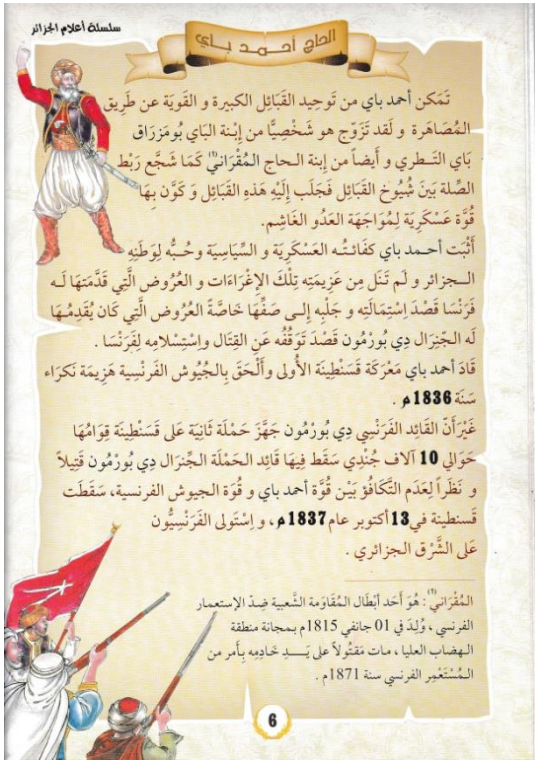 سلسلة أعلام الجزائر
الحاج أحمد باي
تَمَكن أحمد باي من تَوحِيد القَبَائل الكبيرة و القَوية عن طَرِيق
المُصَاهَرة و لَقد تَزَوّج هو شَخْصِيًّا من إِبْنة البَاي بُومَزرَاق
بَاي التَـطري و أَيضاً من إبنة الـحاج المُقْرَانيُّ(1) كَمَا شَجَّع رَبْط
الصِّلة بَينَ شُيُوخ القَبَائل فَجلَب إلَيْهِ هَذِهِ القَبَائل وَ كَوَّن بِهَا
قُوَّة عَسْكَرِيَة لِمُوَاجَهَة العَدُو الغَاشِم.
أَثْبَت أحـمد باي كفَائتُـه العَسْكَرِيَة و السِّيَاسِية وحُبُّه لِوَطَنِهِ
الـجزائر و لَم تَنَل مِن عَزِيمَتِه تِلْكَ الإغْرَاءَات و العُرُوض الَّتِي قَدَّمَتهَا لَـه
فَرَنْسَا قَصْدَ اِسْتِمَالَتِه و جَلْبِه إلـى صَفِّهَا خَاصَّةً العُرُوض الَّتِي كَان يُقَدِمُـهَا
لَه الجِّنِرَال دِي بُورْمُون قَصْدَ تَوَقُفُه عَنِ القِتَال واِسْتِسْلامِه لِفَرَنْسَا .
قَادَ أحمد باي مَعْرَكَة قَسَنْطِينَة الأُولى وأَلْحَق بِالجُيُوش الفَرنْسِية هَزِيمَة نَكرَاء
سَنَة 1836م .
غَيْرَأَنَّ القَائِد الفَرَنْسِي دِي بُورْمُون جَهَّزَ حَمْلَة ثَانِيَة عَلى قَسَنْطِينَة قِوَامُهَا
حَوَالي 10 آلاف جُنْدِي سَقَط فِيهَا قَائِد الحَمْلَة الجِّنرَال دِي بورمون قَتِيلاً
و نَظَراً لِعَدَم التَّكَافُؤ بَيْـن قُوَّة أحمد باي و قُوَة الـجيوش الفرنسية، سَقَطَت
قَسنطينة في13أكتوبر عام1837م ، و اِستَولى الفَرَنْسِيُّون
عَلى الشَّرْق الجزائري .
المُقْرَانيُّ(1) : هُوَ أَحَد أَبْطَال المُقَاوَمة الشَّعبية ضِدّ الإستعمار
الفرنسي ، وُلِدَ في 01 جانفي 1815م بـمجانة منطقة
الـهضاب العليا ، مـات مَقتُـولاً على يَـــدِ خَادِمِه بِأمر من
الـمُسْتَعْمِر الفرنسي سنة 1871م .
6